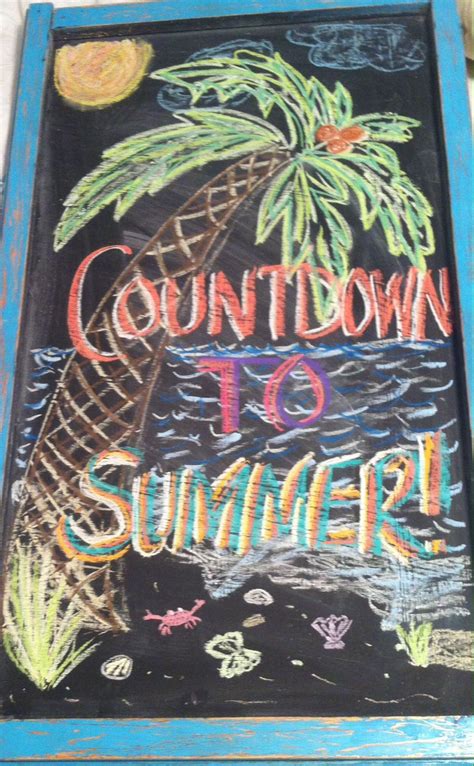 COUNTDOWN
TO
SUMMER!